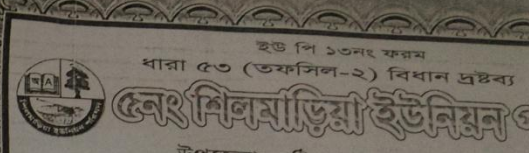 ইউ পি ১৩নং ফরম
ধারা ৫৩ (তফসিল-২) বিধান দ্রষ্টব্য
৫নং শিলমাড়িয়া ইউনিয়ন